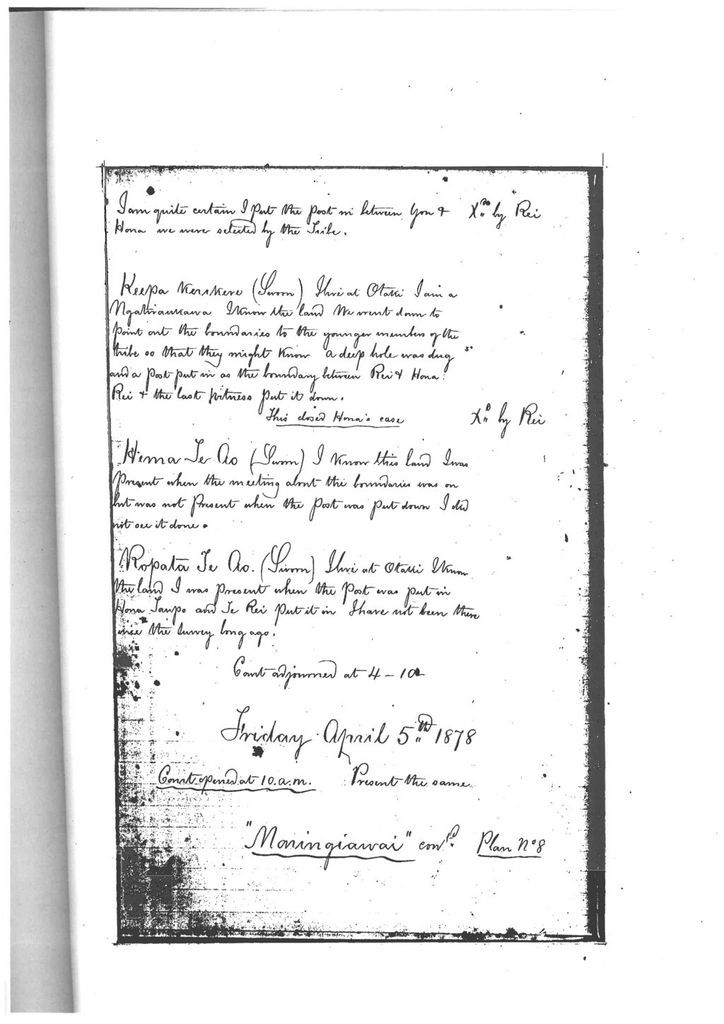 I am quite certain I put the post in between you & Xd. by Rei
Hona we were selected by the Tribe.
Keepa Kerekere (Sworn) I live at Otaki I am a
Ngatiraukawa I know the land We went down to
point out the boundaries to the younger members of the
tribe so that they might know a deep hole was dug
and a Post put in as the boundary between Rei & Hona.
Rei & the last witness put it down.
This closed Hona's case Xd. by Rei
Hema Te Ao (Sworn) I know this land I was
Present when the meeting about the boundaries was on
but was not Present when the Post was put down I did
not see it done.
Ropata Te Ao. (Sworn) I live at Otaki I know
the land I was present when the Post was put in
Hona Taupo and Te Rei put it in I have not been there
since the survey long ago.
Court adjourned at 4-10
Friday April 5th 1878
Court opened at 10. a.m. Present the same
"Maringiawai" cond. Plan No 8